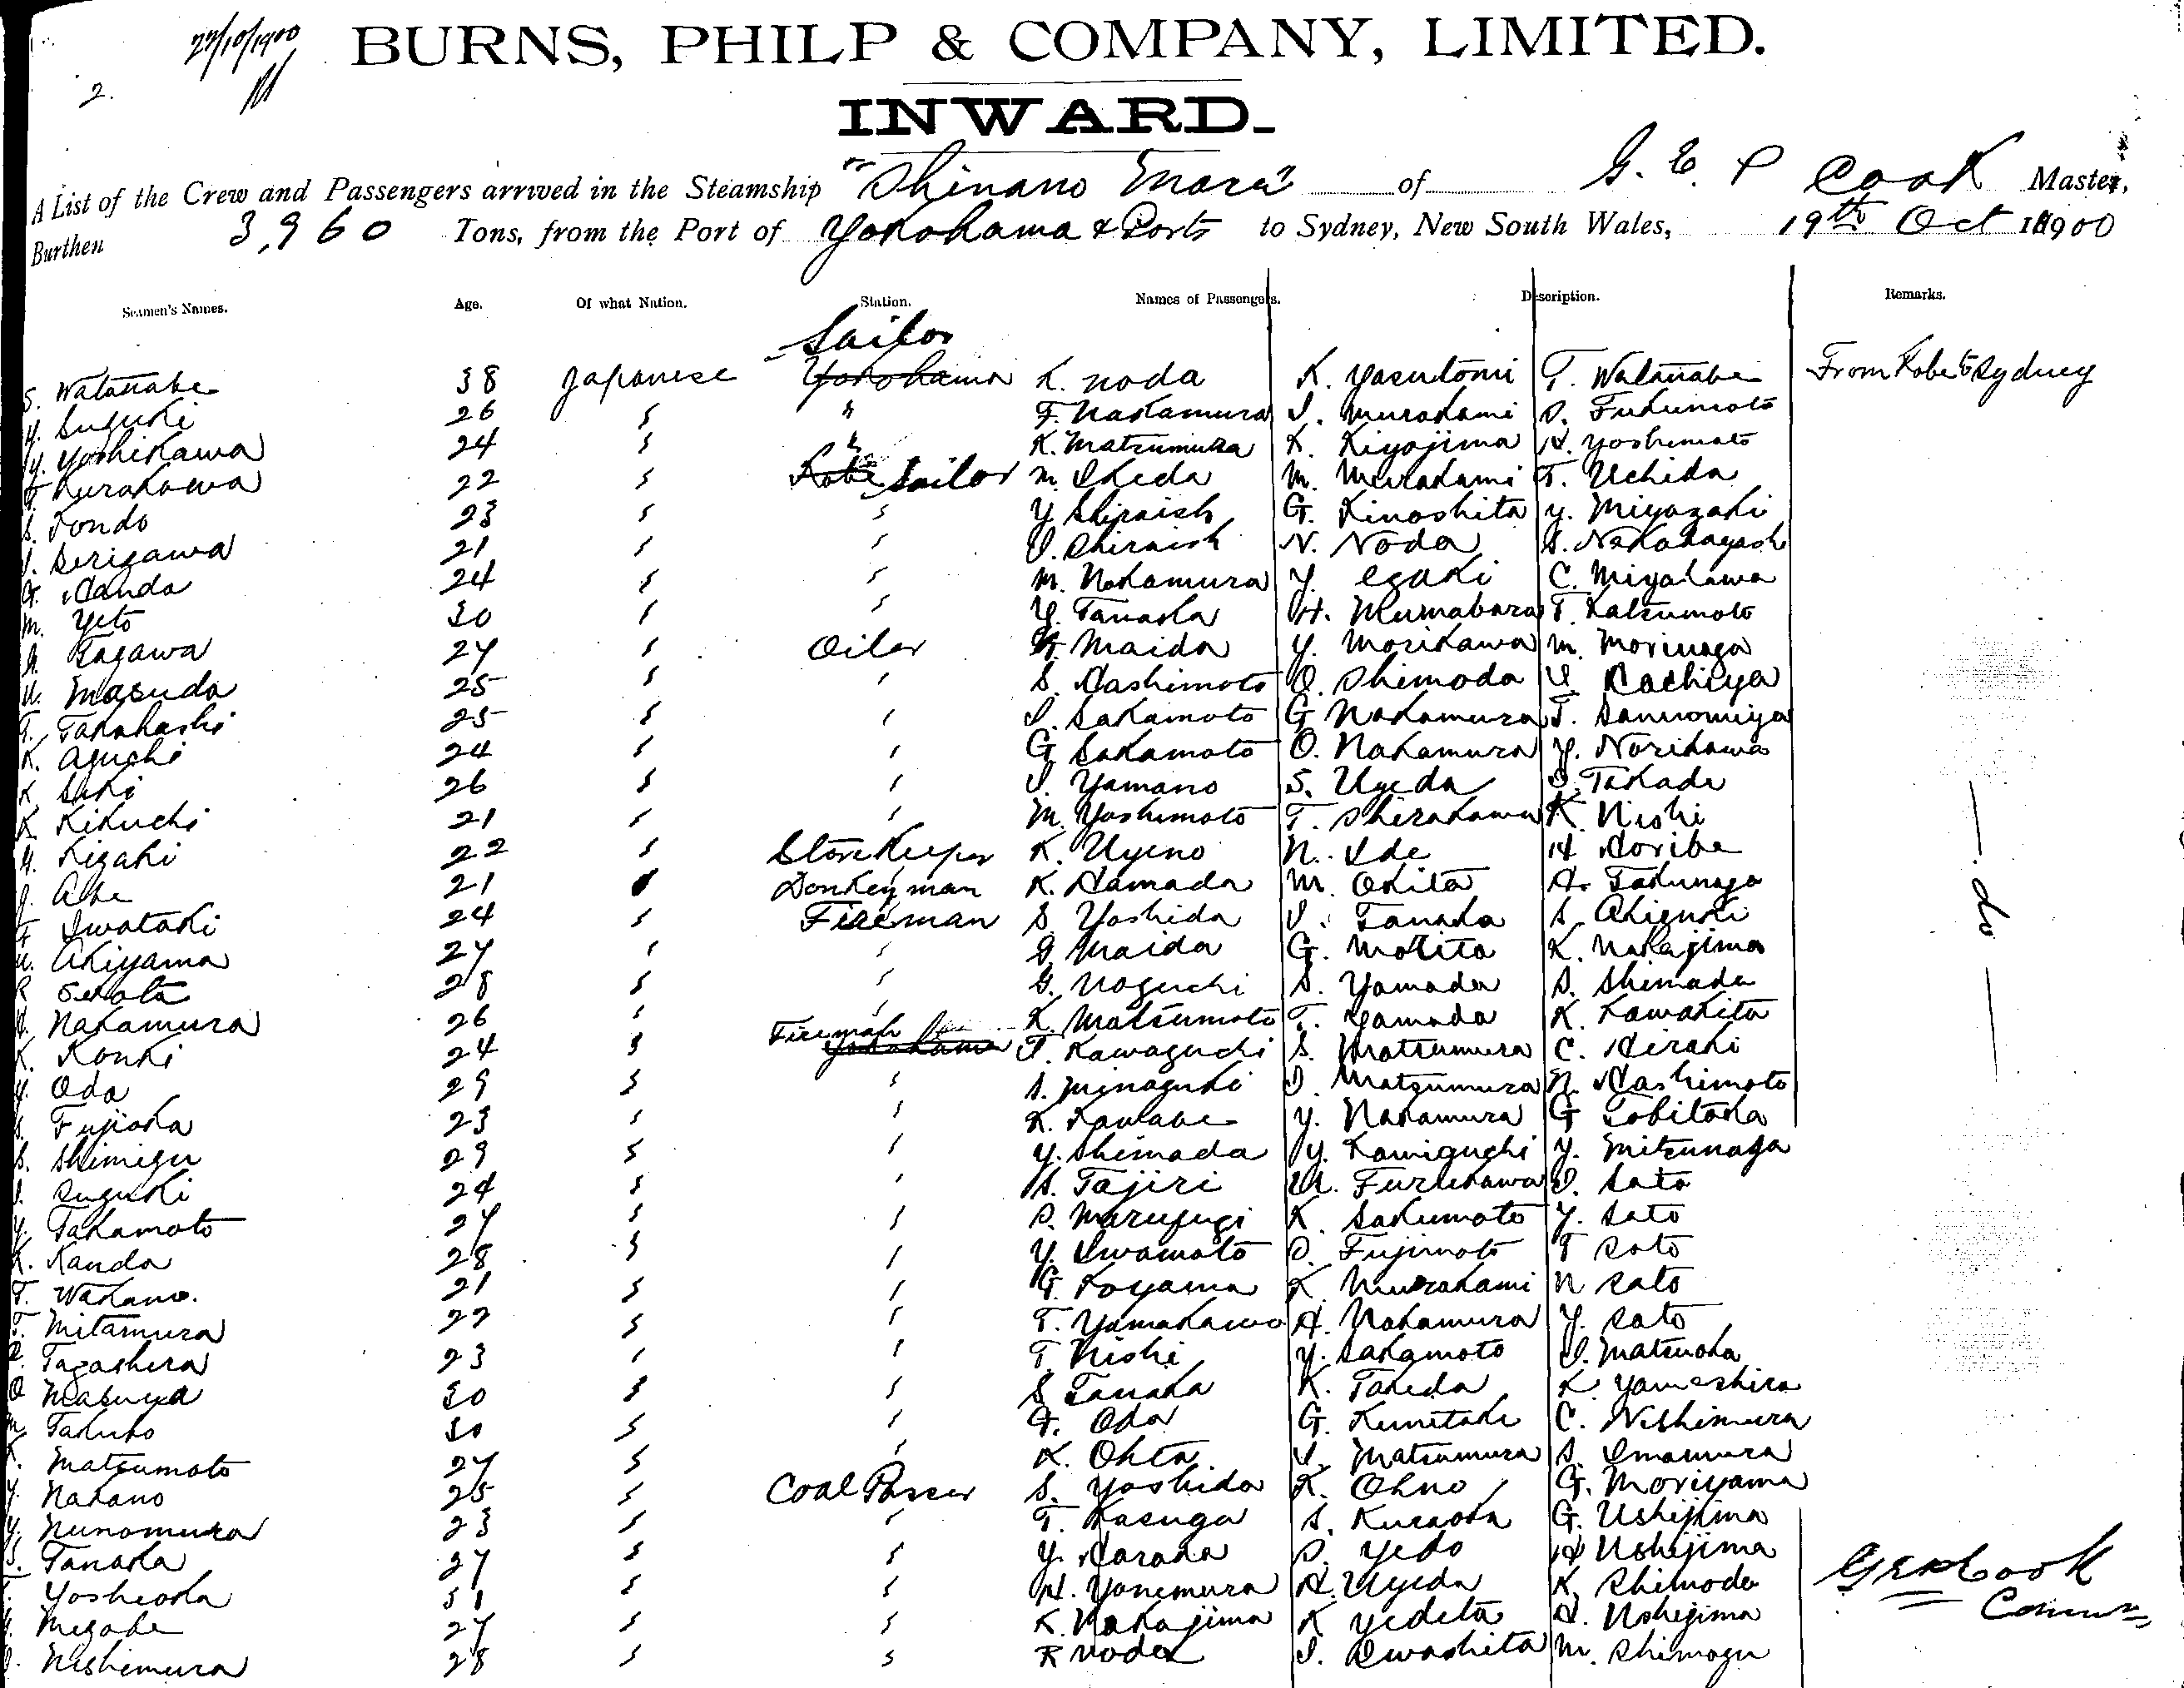 27/10/1900
2.
BURNS, PHILP & COMPANY, LIMITED.
INWARD.
A List of the Crew and Passengers arrived in the Steamship "Shinano Maru" of G. E. P Cook Master,
Burthen 3,960 Tons, from the Port of Yokohama & Ports to Sydney, New South Wales, 19th Oct 1900
Seamen's Names. Age. Of what Nation. Station. Names of Passengers. Description. Remarks.
Sailor
S. Watanabe 38 Japanese Yokohama K. Noda K. Yasutomi T. Watanabe From Kobe to Sydney
Y. Suzuki 26 " " F. Nakamura I. Murakami S. Fukumoto
Y. Yoshikawa 24 " " K. Matsumura K. Kiyojima H. Yoshimoto
Kurakawa 22 " Kobe Sailor M. Ikeda M. Murakami T. Uchida
S. Kondo 23 " " Y. Shiraish G. Kinoshita Y. Miyazaki
Serizawa 21 " " I. Shiraish N. Noda S. Nakabayash
Handa 24 " " M. Nakamura Y. Egaki C. Miyakawa
M. Yeto 30 " " Y. Tanaka H. Mumabara T. Katsumoto
Tagawa 27 " Oiler Maida Y. Morikawa M. Morinaga
Masuda 25 " " S. Hashimoto O. Shimoda U. Hachiya
T. Takahashi 25 " " I. Sakamoto G Nakamura T. Sannomiya
K. Aguchi 24 " " G Sakamoto O. Nakamura Y. Norikawa
K. Seki 26 " " I. Yamano S. Uyeda Takade
K Kikuchi 21 " " M. Yoshimoto T. Shirakawa K. Nishi
Kizaki 22 " Storekeeper K. Uyeno N. Ide H Horibe
Abe 21 " Donkeyman K. Hamada M. Okita H. Takunaga
Iwataki 24 " Fireman S. Yoshida I. Tanaka S. Akizuki
Akiyama 27 " " G. Maida G. Motita K. Nakajima
28 " " G. Noguchi S. Yamada S. Shimada
Nakamura 26 " " K. Matsumoto T. Yamada K. Kawakita
K. Konki 24 " Fireman Yokohama T. Kawaguchi S. Matsumura C. Hiraki
Y. Oda 29 " " S. Minaguki I. Matsumura N. Hashimoto
Fujioka 23 " " K. Kawabe Y. Nakamura G Tobitaka
S. Shimizu 29 " " Y. Shimada Y. Kamiguchi Y. Mitsunaga
Suzuki 24 " " S. Tajiri U. Furukawa I. Sato
Y. Takamoto 27 " " S. Marufugi K. Sakumoto Y. Sato
K. Kanda 28 " " Y. Iwamoto S. Fujimoto T Sato
T. Wakano. 21 " " G. Koyama K. Murakami N Sato
T. Mitamura 22 " " T. Yamakawa H. Nakamura Y. Sato
Tagashira 23 " " T. Nishi Y. Sakamoto I. Matsuoka
Masuya 30 " " S Tanaka K. Takeda K. Yamashira
M. Takubo 30 " " Oda G. Kunitake C. Nishimura
K. Matsumoto 27 " " K. Ohta I. Matsumura S. Imamura
Y. Nakano 25 " Coal Passer S. Yoshida K. Ohno G. Moriyama
Y. Nunomura 23 " " T. Kasuga S. Kuraoka G. Ushijima
Tanaka 27 " " Y. Harada S. Yedo H Ushijima
Yoshioka 31 " " H. Yonemura H. Uyeda K. Shimoda
Megabe 27 " " K. Nakajima K Yedeta H. Ushijima
Nishimura 28 " " K Noda I. Iwashita M. Shimazu
do
GEPCook
Comm